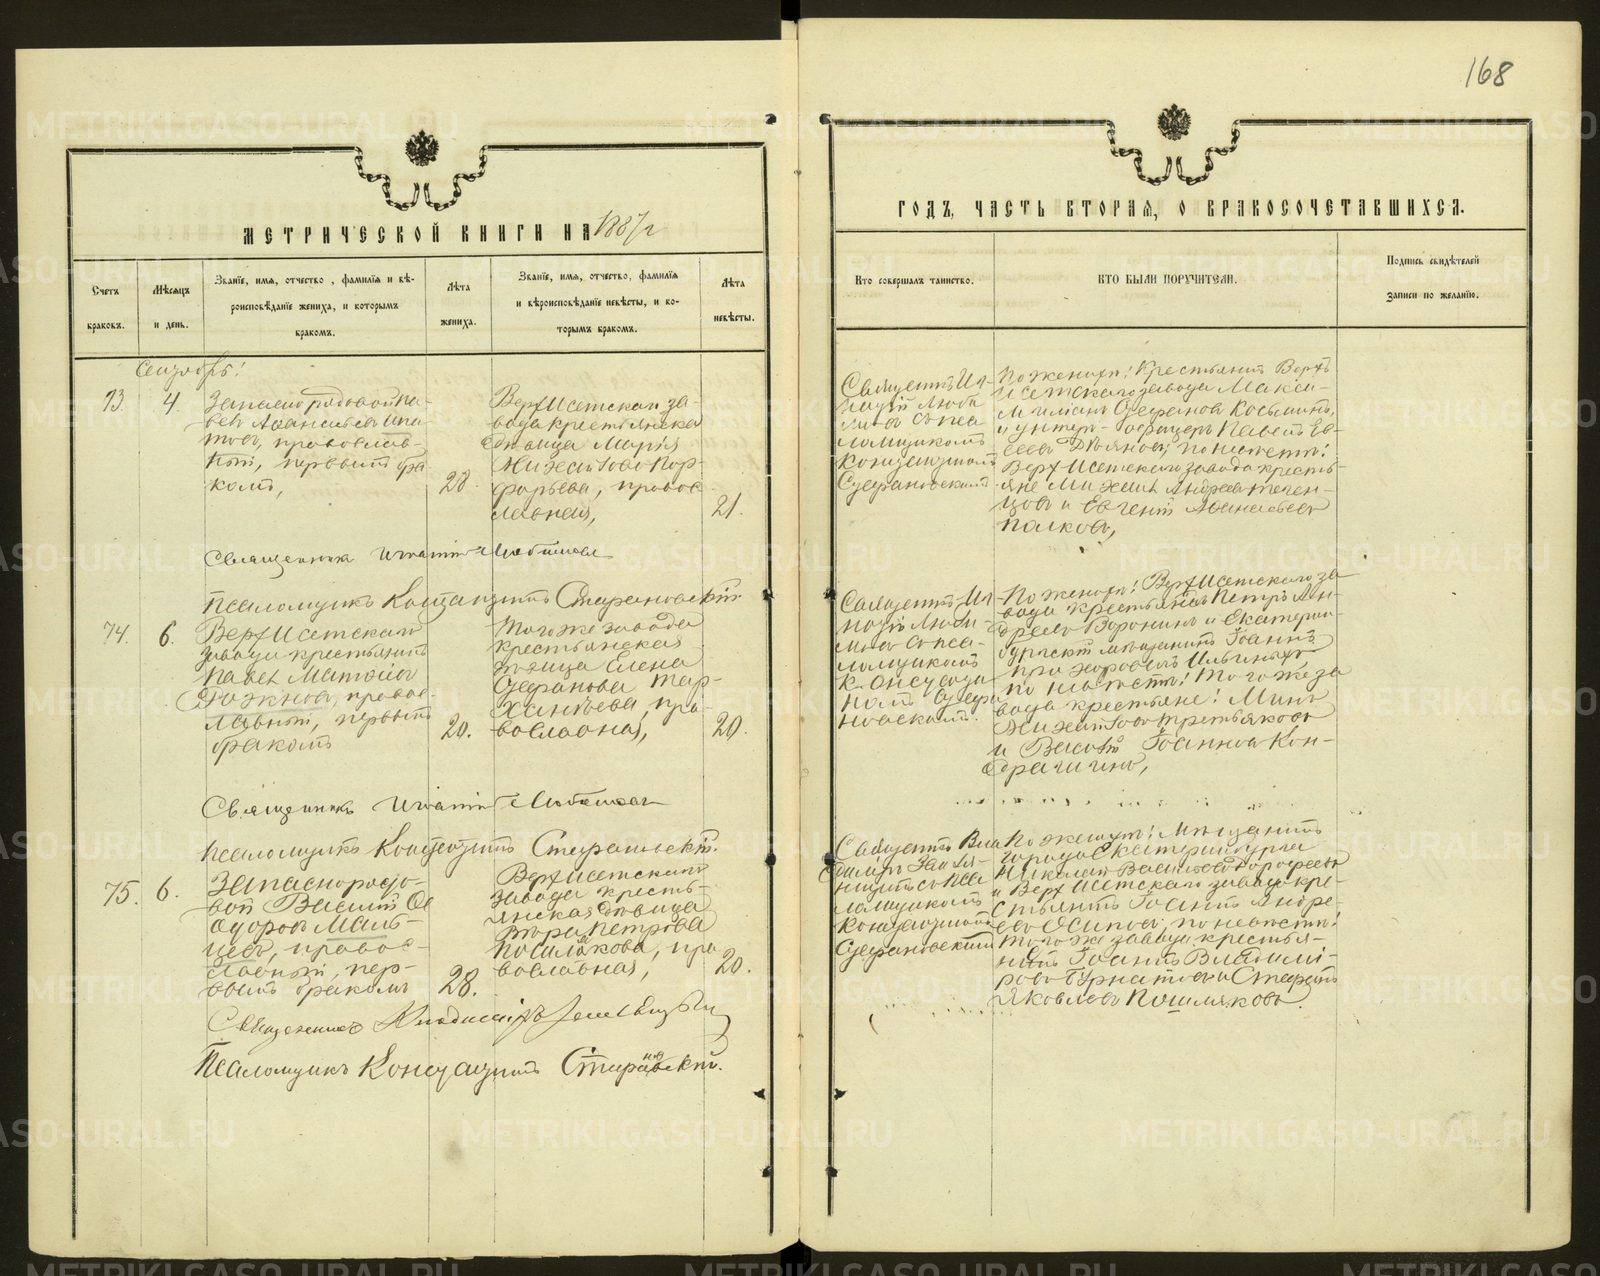 168
МЕТРИЧЕСКОЙ КНИГИ НА 1887 г
ГОДЪ, ЧАСТЬ ВТОРАЯ, О БРАКОСОЧЕТАВШИХСЯ.
Счетъ браковъ.
Мѣсяцъ и день.
Званіе, имя, отчество, фамилія и вѣ-
роисповѣданіе жениха, и которымъ
бракомъ.
Лѣта
жениха.
Званіе, имя, отчество, фамилія
и вѣроисповѣданіе невѣсты, и ко-
торымъ бракомъ.
Лѣта
невѣсты.
Кто совершалъ таинство.
КТО БЫЛИ ПОРУЧИТЕЛИ.
Подпись свидѣтелей
записи по желанію.
Сентябрь!
73. 4.
Запасно рядовой Па-
велъ Афанасьевъ Ипа-
товъ, православ-
ный, первымъ бра
комъ,
28.
Верхъ Исетскаго за-
вода крестьянская
дѣвица Марія
Михайлова Пор-
фирьева, правос
лавная,
21.
Священникъ Иг-
натій Люби
мовъ съ пса
ломщикомъ
Константиномъ
Стефановскимъ
По женихѣ: Крестьянинъ Верхъ
Исетскаго завода Макси-
миліанъ Стефановъ Косьминъ,
и унтеръ-офицеръ Павелъ Ев-
сеевъ ; по невѣстѣ:
Верхъ Исетскаго завода кресть-
яне Михаилъ Андреевъ
и Евгеній Афанасьевъ
Палковъ,
Священникъ Игнатій Любимовъ
Псаломщикъ Константинъ Стефановскій
74. 6.
Верхъ Исетскаго
завода крестьянинъ
Павелъ Матѳіевъ
Рожновъ, правос
лавный, первымъ
бракомъ
20.
Того же завода
крестьянская
дѣвица Елена
Стефанова Тар-
ханѣева, пра-
вославная,
20.
Священникъ Иг
натій Люби-
мовъ съ пса-
ломщикомъ
Константи
номъ Стефа
новскимъ.
По женихѣ: Верхъ Исетскаго за
вода крестьянинъ Петръ Ан-
дреевъ Воронинъ и Екатерин
бургскій мѣщанинъ Іоаннъ
Ильиныхъ
по невѣстѣ: того же за
вода крестьяне: Минъ
Михайловъ Третьяковъ
и Василій Іоанновъ Кон-
драшинъ,
Священникъ Игнатій Любимовъ
Псаломщикъ Константинъ Стефановскій.
75. 6.
Запасно рядо-
вой Василій Ѳе
одоровъ Маль-
цевъ, правос-
лавный, пер-
вымъ бракомъ
28.
Верхъ Исетскаго
завода кресть-
янская дѣвица
Вѣра Петрова
Посилякова, пра
вославная,
20.
Священникъ Вла
диміръ
съ пса
ломщикомъ
Константиномъ
Стефановскимъ
По женихѣ: Мѣщанинъ
города Екатеринбурга
Николай Васильевъ Дорофеевъ
и Верхъ Исетскаго завода кре-
стьянинъ Іоаннъ Андре-
евъ Осиповъ; по невѣстѣ:
того же завода крестья-
нинъ Іоаннъ Владимі-
ровъ Бурнатовъ и Стефанъ
Яковлевъ Пошляковъ
Священникъ Владиміръ
Псаломщикъ Константинъ Стефановскій.
METRIKI.GASO-URAL.RU